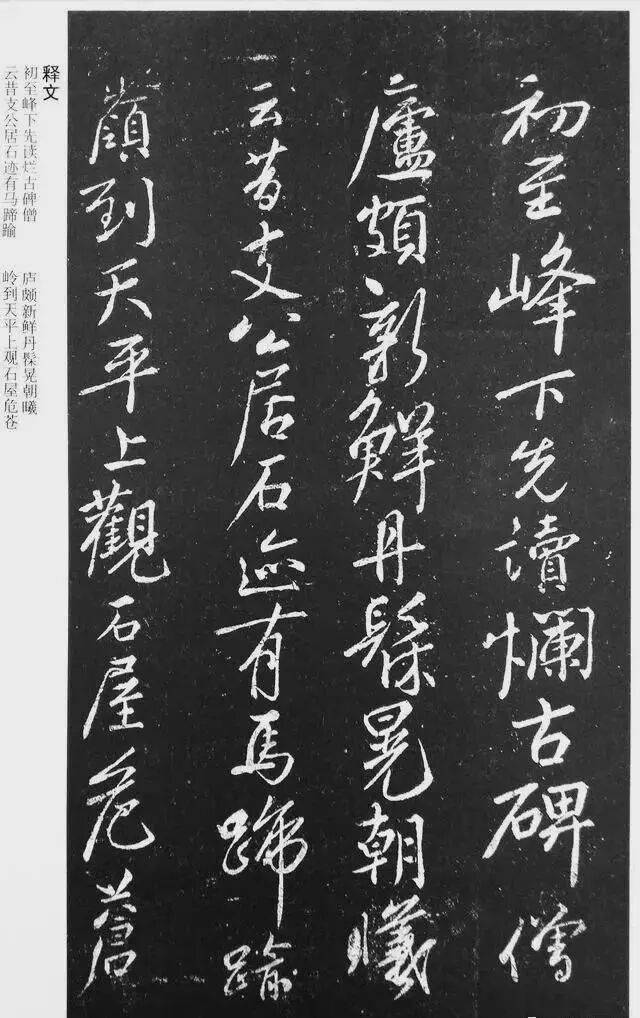 初至峰下先讀爛古碑僧
廬頗新鮮丹髹晃朝曦
云昔支公居石迹有馬蹄踰
嶺到天平上觀石屋危蒼
释文
初至峰下先读烂古碑僧 庐颇新鲜丹髹晃朝曦
云昔支公居石迹有马蹄踰 岭到天平上观石屋危苍